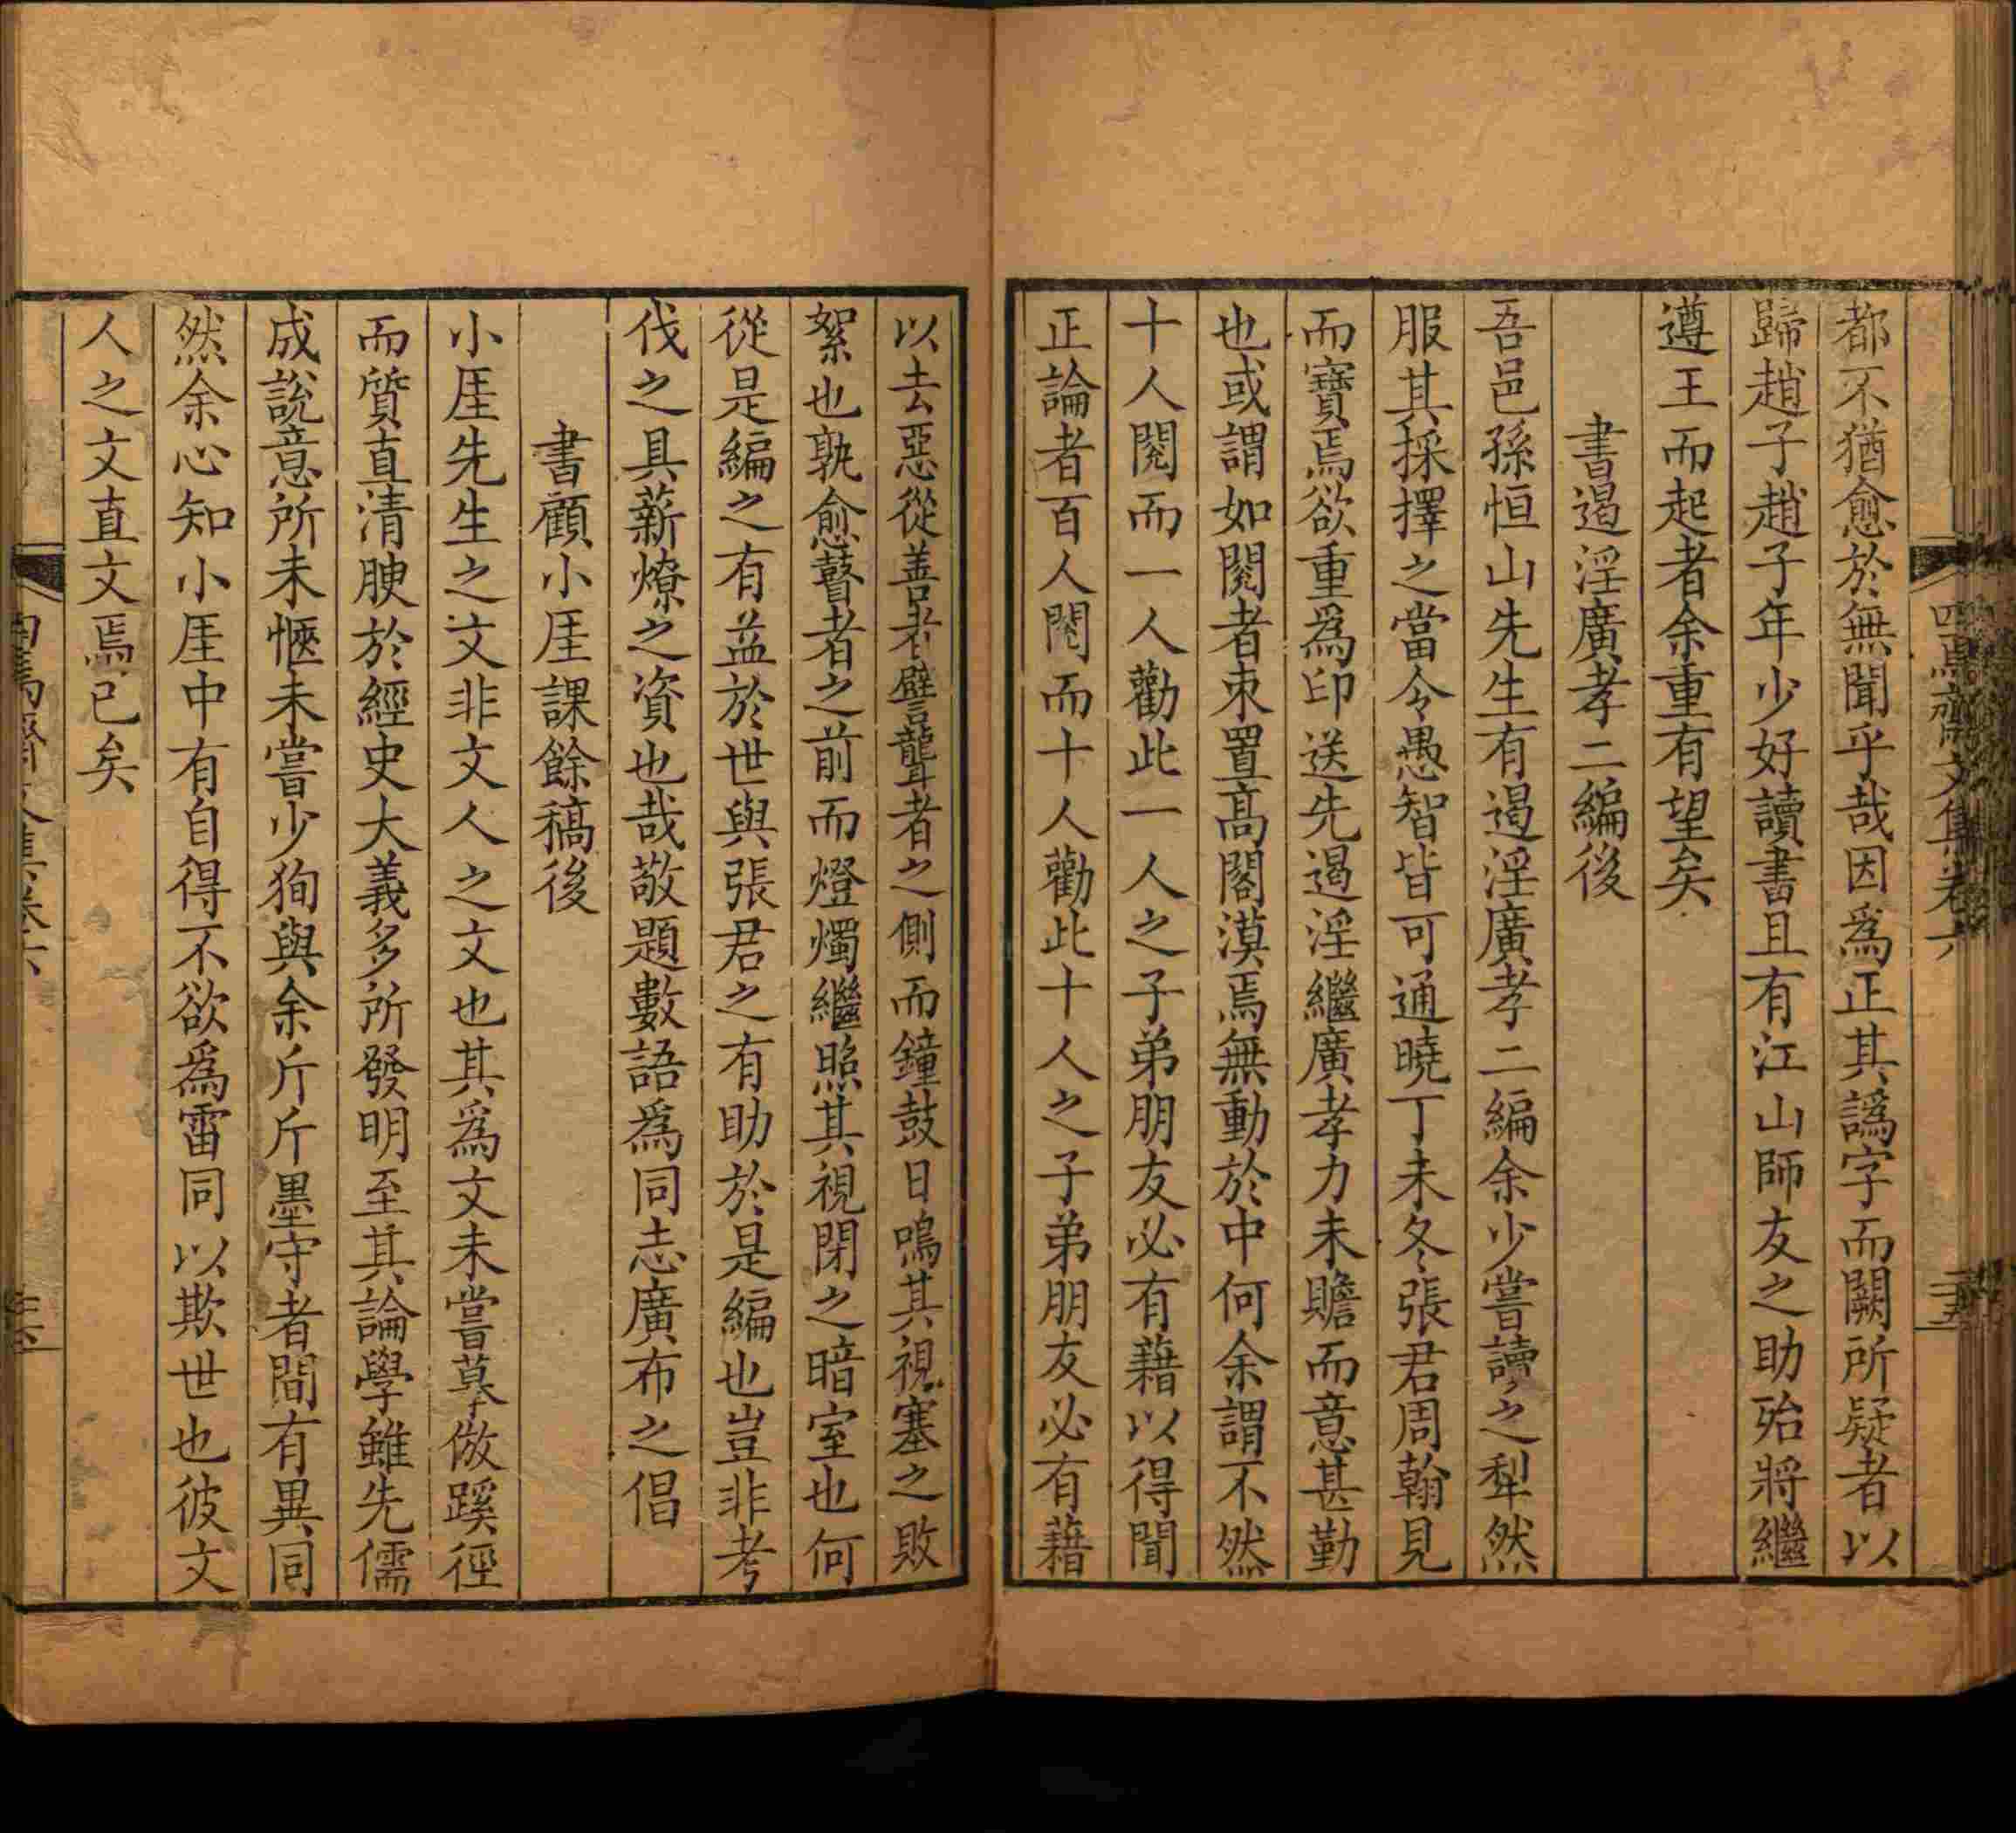 四焉齋文集卷六
都不猶愈於無聞乎哉因爲正其譌字而闕所疑者以
歸趙子趙子年少好讀書且有江山師友之助殆將繼
遵王而起者余重有望矣
書遏淫廣孝二編後
吾邑孫恒山先生有遏淫廣孝二編余少嘗讀之犁然
服其採擇之當令愚智皆可通曉丁未冬張君周翰見
而寶焉欲重爲印送先遏淫繼廣孝力未贍而意甚勤
也或謂如閱者束置高閣漠焉無動於中何余謂不然
十人閱而一人勸此一人之子弟朋友必有藉以得聞
正論者百人閱而十人勸此十人之子弟朋友必有藉
以去惡從善者譬聾者之側而鐘鼓日鳴其視塞之敗
絮也孰愈瞽者之前而燈燭繼照其視閉之暗室也何
從是編之有益於世與張君之有助於是編也豈非考
伐之具薪燎之資也哉敬題數語爲同志廣布之倡
書顧小厓課餘稿後
小厓先生之文非文人之文也其爲文未嘗摹倣蹊徑
而質直清腴於經史大義多所發明至其論學雖先儒
成說意所未愜未嘗少狥與余斤斤墨守者間有異同
然余心知小厓中有自得不欲爲雷同以欺世也彼文
人之文直文焉已矣
四焉齋文集卷六